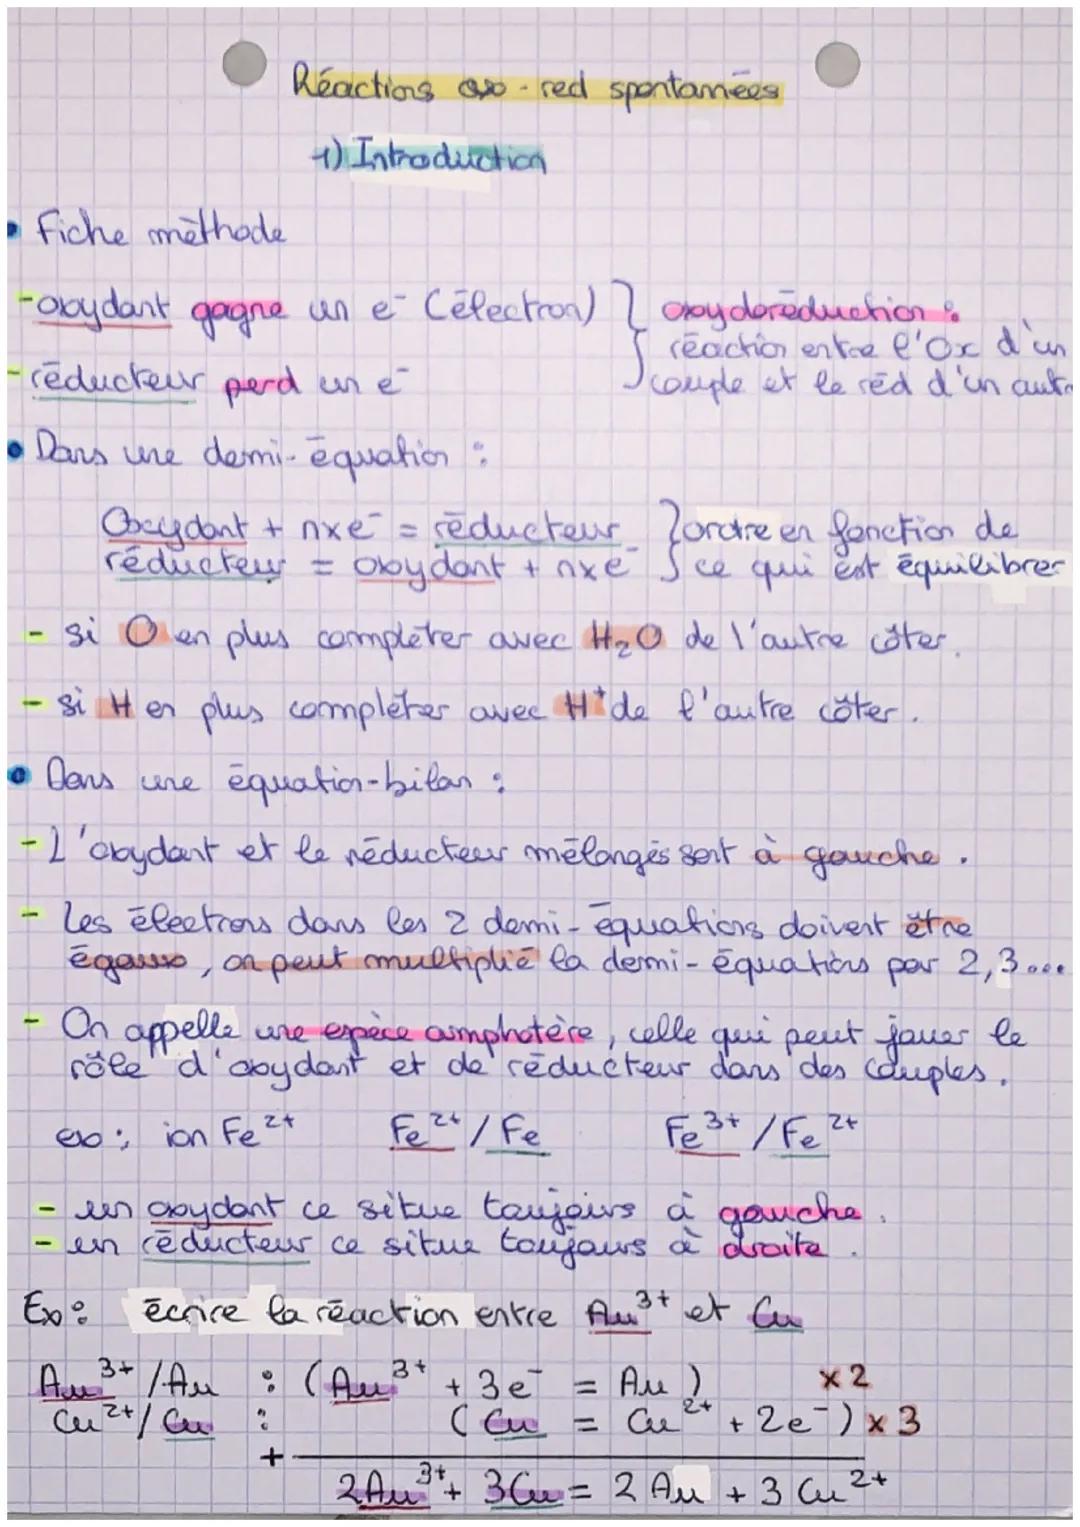 Réactions ox-red spontanées
1) Introduction
• Fiche méthode
- oxydant gagne un e⁻ (électron) } oxydoréduction :
réaction entre l'Ox d'un
- réducteur perd un e⁻ couple et le réd d'un autre
• Dans une demi-équation :
Oxydant + nxe⁻ = réducteur } ordre en fonction de
réducteur = oxydant + nxe⁻ ce qui est équilibrer
- si O en plus complèter avec H₂O de l'autre côter.
- si H en plus complèter avec H⁺ de l'autre côter.
• Dans une équation-bilan :
- L'oxydant et le réducteur mélangés sont à gauche.
- Les électrons dans les 2 demi-équations doivent être
égaux, on peut multiplié la demi-équations par 2,3...
- On appelle une espèce amphotère, celle qui peut jouer le
rôle d'oxydant et de réducteur dans des couples.
ex : ion Fe²⁺ Fe²⁺/Fe Fe³⁺/Fe²⁺
- un oxydant ce situe toujours à gauche.
- un réducteur ce situe toujours à droite.
Ex : écrire la réaction entre Au³⁺ et Cu
Au³⁺/Au : (Au³⁺ + 3e⁻ = Au) x2
Cu²⁺/Cu : (Cu = Cu²⁺ + 2e⁻) x3
+
2Au³⁺ + 3Cu = 2Au + 3Cu²⁺